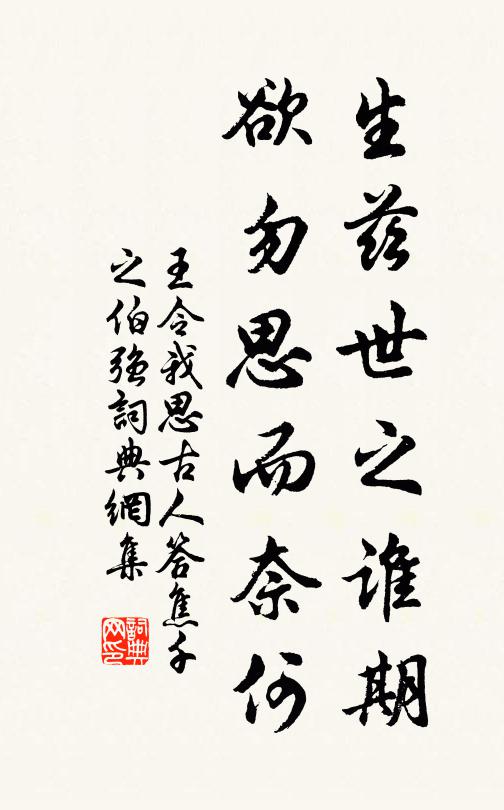 生茲世之誰期
欲勿思而奈何
王令我思古人答焦千
之伯強詞典網集
詞典
网印